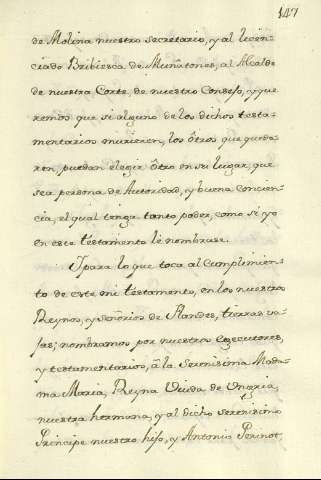 147
de Molina nuestro secretario, y al licen-
ciado Bribiesca de Muñatones, al Alcalde
de nuestra Corte, de nuestro Consejo, y que-
remos que si alguno de los dichos testa-
mentarios murieren, los ôtros que queda-
ren, puedan elegir ôtro en su lugar, que
sea persona de Autoridad, y buena concien-
cia, el qual tenga tanto poder, como si yo
en este testamento le nombrase.
Y para lo que toca al Cumplimien-
to de este mi testamento, en los nuestros
Reynos, y señorios de Flandes, tierras va-
jas; nombramos por nuestros egecutores,
y testamentarios, â la Serenisima Mada-
ma Maria, Reyna Viuda de Ungria,
nuestra hermana, y al dicho serenisimo
Principe nuestro hijo, y Antonio Perinot,